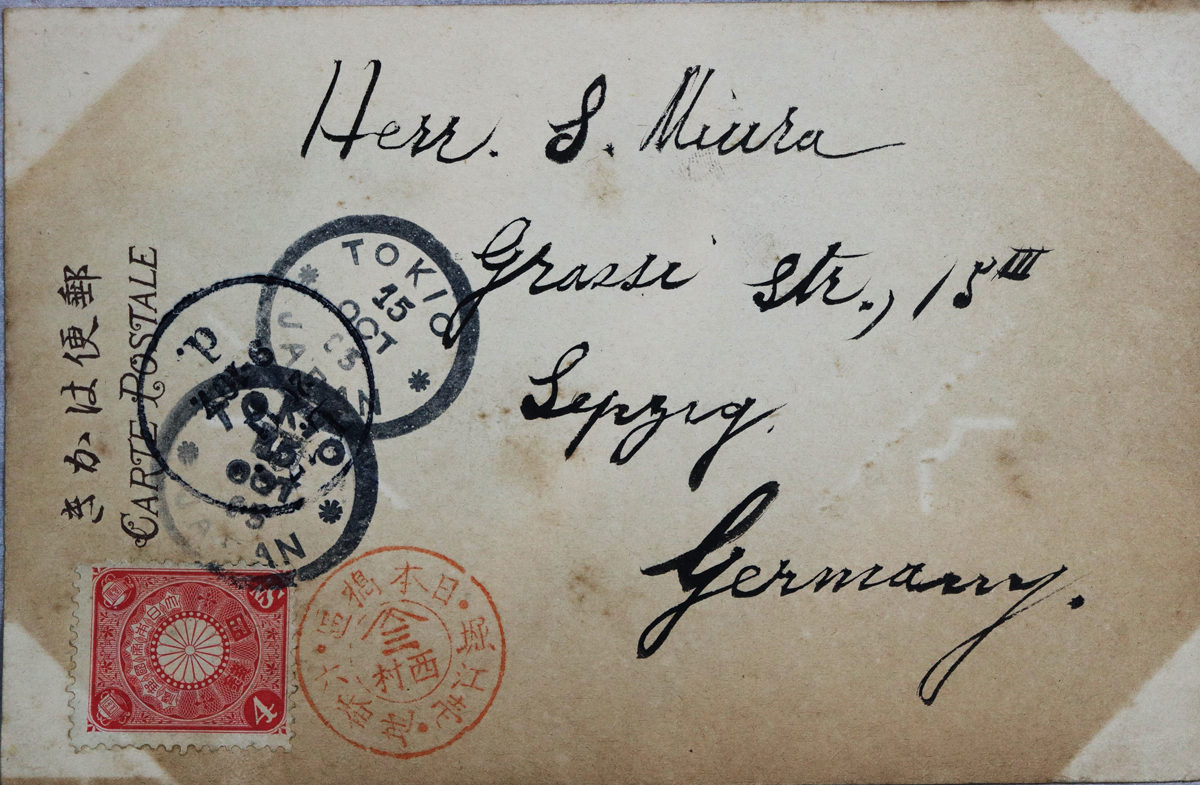 Herr. S. Miura
Grassi Str., 15 III
Leipzig.
Germany.
郵便はかき
CARTE POSTALE
TOKIO
15
OCT
05
JAPAN
TOKIO
15
OCT
05
JAPAN
日本橋区
堀江町
六番地
西村
4